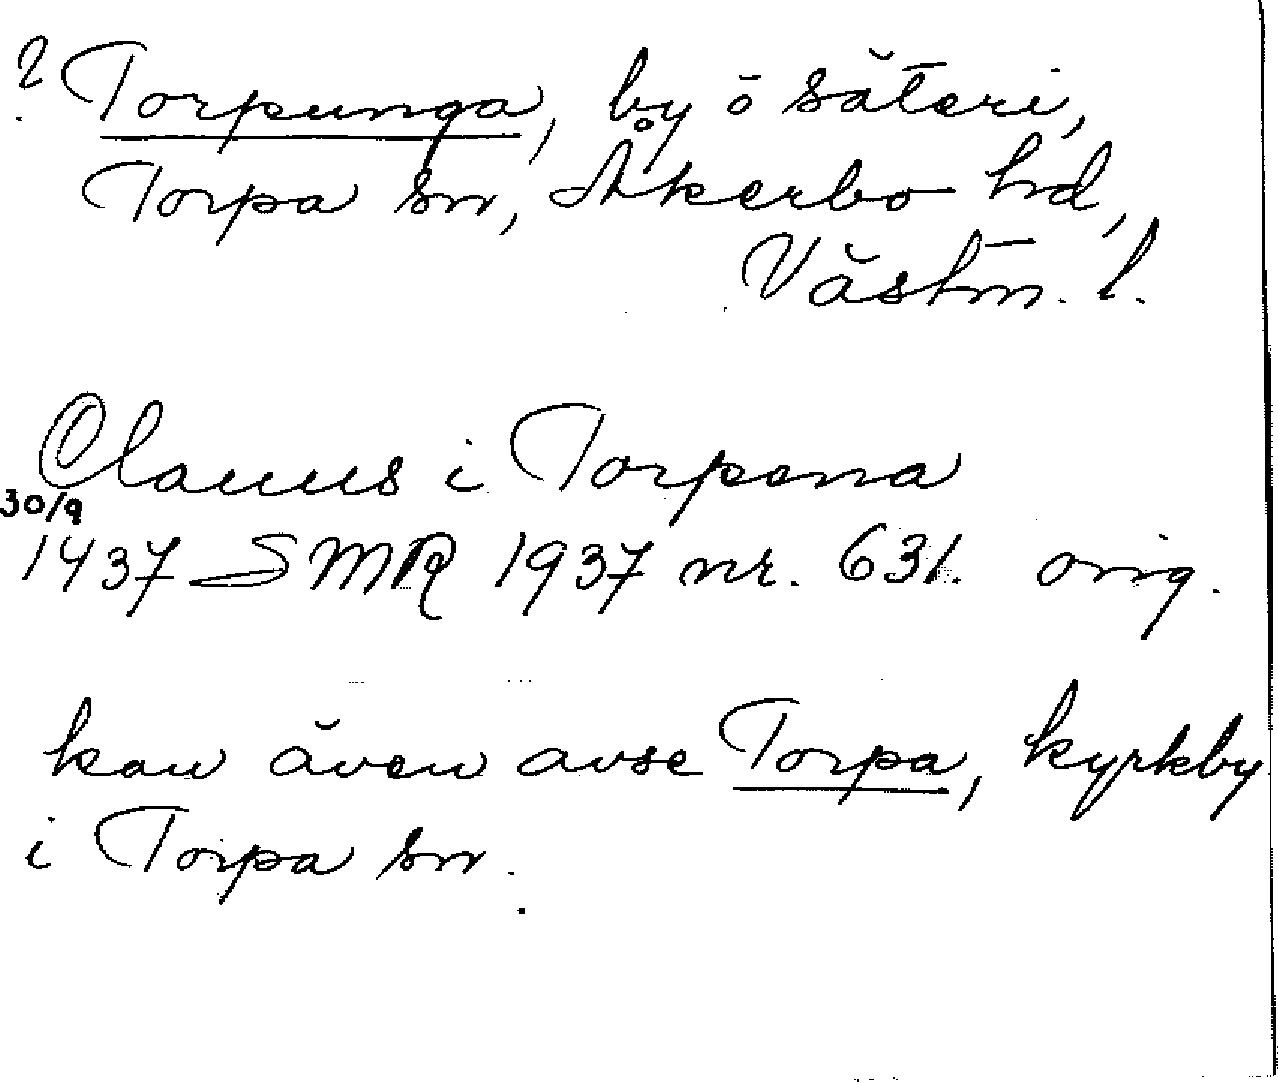 ? Torpunga, by o säteri,
Torpa sn, Åkerbo hd,
Västm. l.
Olauus i Torpena
30/9
1437 SMR 1937 nr. 631. orig.
kan även avse Torpa, kyrkby
i Torpa sn.